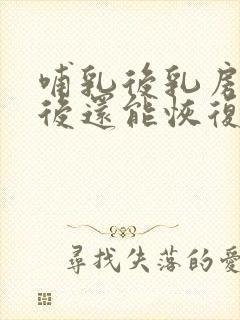 哺乳後乳房
後還能恢復
尋找失落的愛